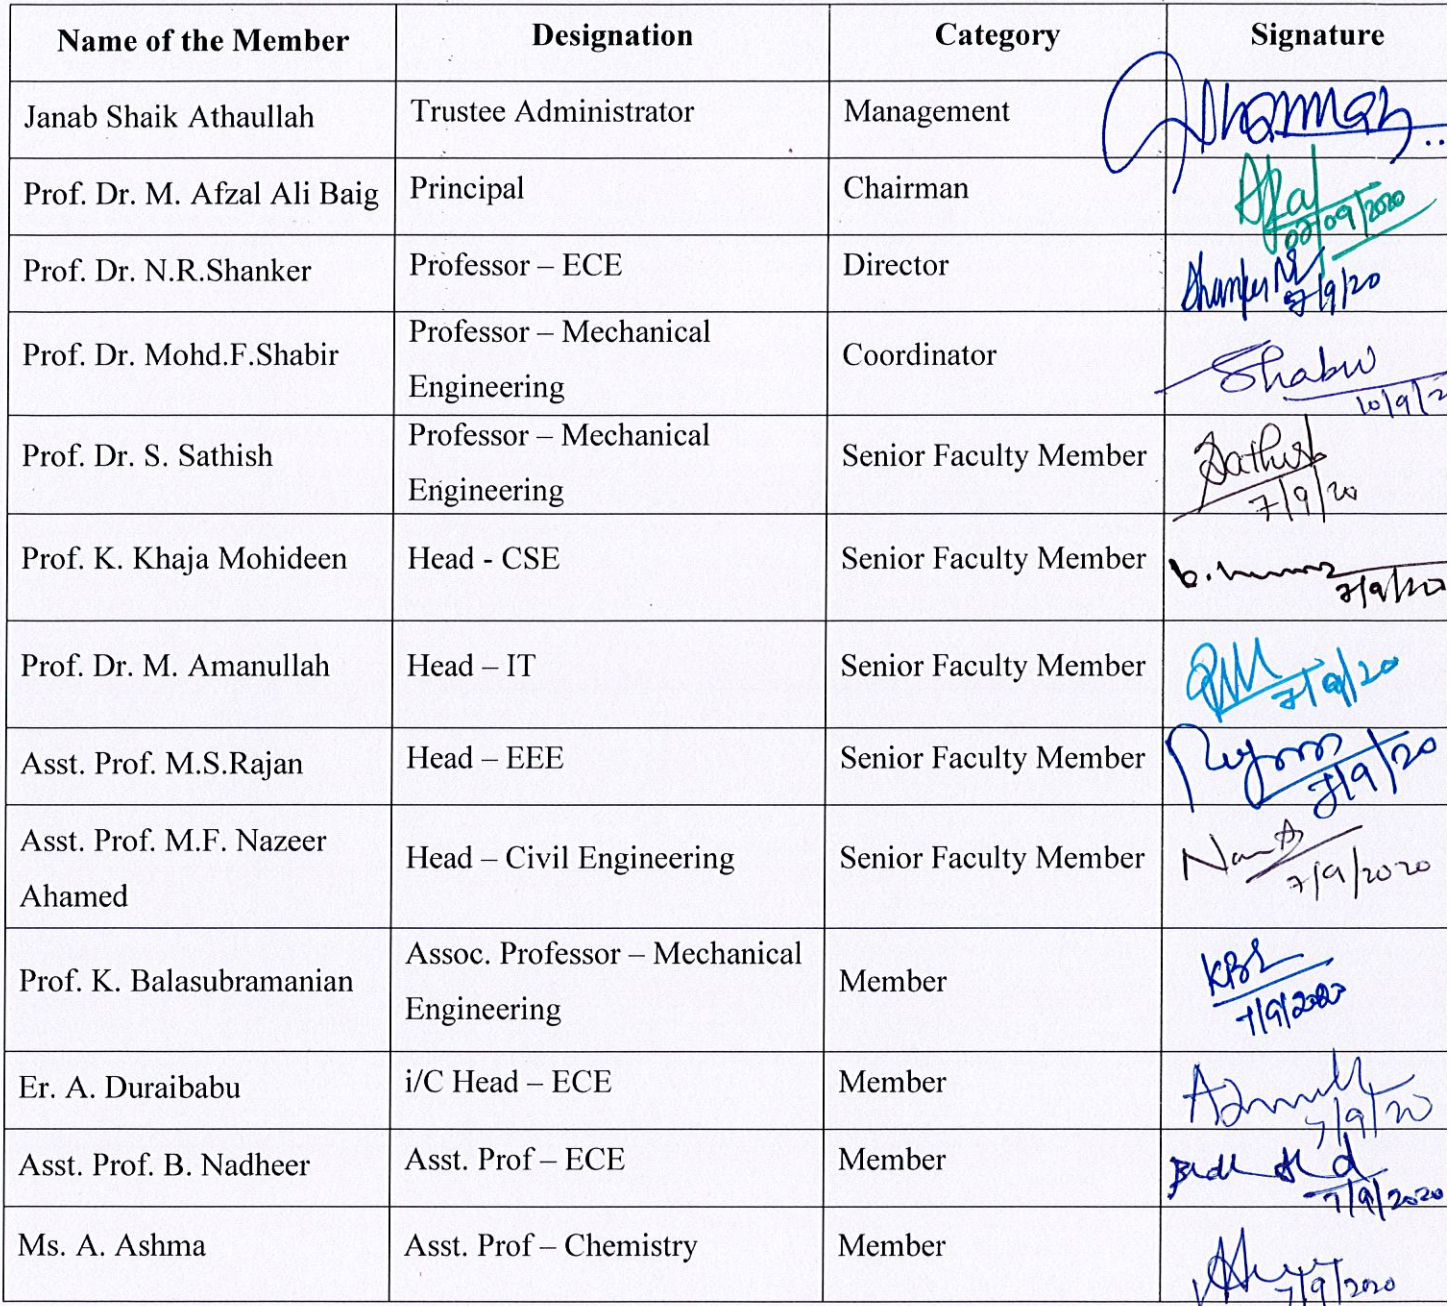 Name of the Member Designation Category Signature
Janab Shaik Athaullah Trustee Administrator Management
Prof. Dr. M. Afzal Ali Baig Principal Chairman
09/2020
Prof. Dr. N.R.Shanker Professor – ECE Director Shanker
7/9/20
Prof. Dr. Mohd.F.Shabir Professor – Mechanical
Engineering Coordinator Shabir
10/9/2
Prof. Dr. S. Sathish Professor – Mechanical
Engineering Senior Faculty Member Sathish
7/9/20
Prof. K. Khaja Mohideen Head - CSE Senior Faculty Member
7/9/20
Prof. Dr. M. Amanullah Head – IT Senior Faculty Member
7/9/20
Asst. Prof. M.S.Rajan Head – EEE Senior Faculty Member
7/9/20
Asst. Prof. M.F. Nazeer
Ahamed Head – Civil Engineering Senior Faculty Member
7/9/2020
Prof. K. Balasubramanian Assoc. Professor – Mechanical
Engineering Member KBS
7/9/2020
Er. A. Duraibabu i/C Head – ECE Member
7/9/20
Asst. Prof. B. Nadheer Asst. Prof – ECE Member
7/9/2020
Ms. A. Ashma Asst. Prof – Chemistry Member
7/9/2020